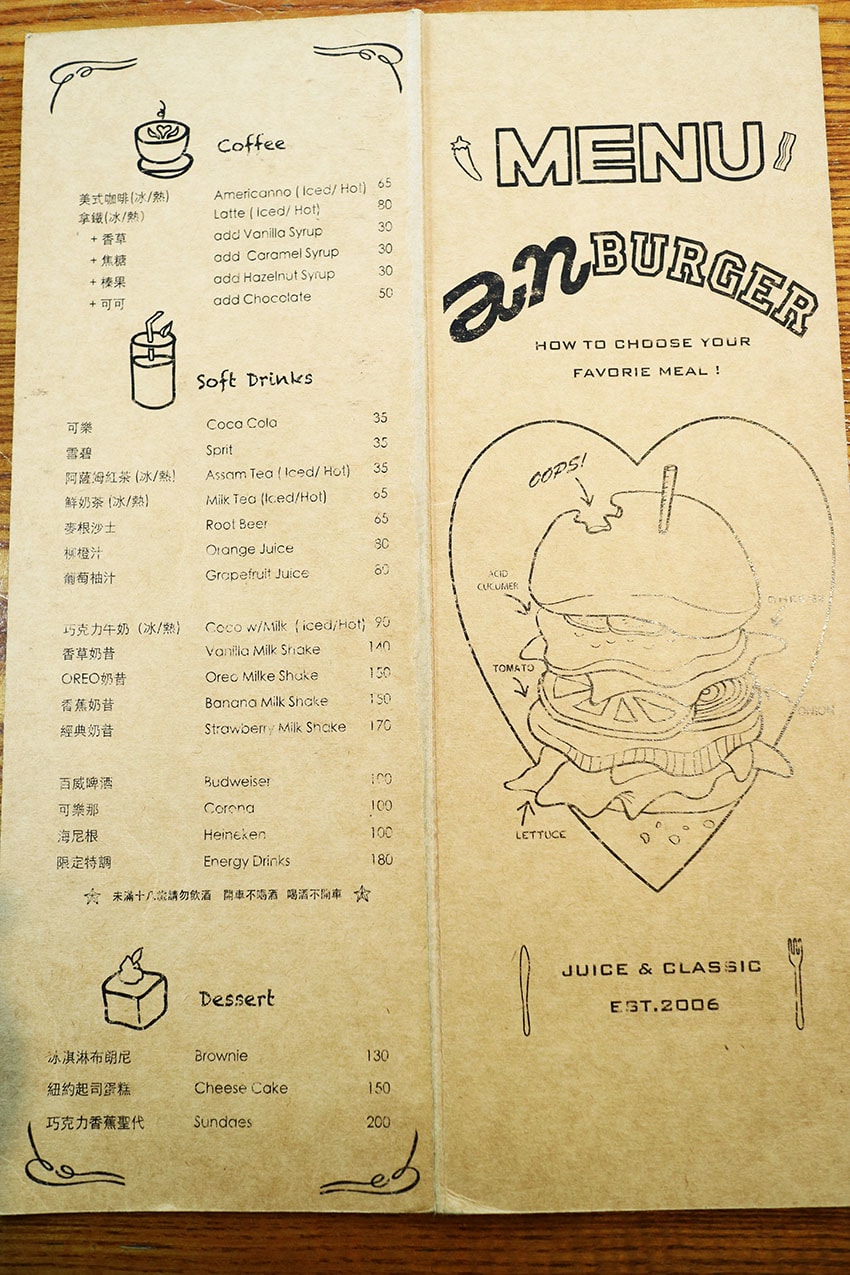 Coffee
美式咖啡(冰/熱) Americanno ( Iced/ Hot) 65
拿鐵(冰/熱) Latte ( Iced/ Hot) 80
+ 香草 add Vanilla Syrup 30
+ 焦糖 add Caramel Syrup 30
+ 榛果 add Hazelnut Syrup 30
+ 可可 add Chocolate 50
Soft Drinks
可樂 Coca Cola 35
雪碧 Sprit 35
阿薩姆紅茶 (冰/熱) Assam Tea ( Iced/ Hot) 35
鮮奶茶 (冰/熱) Milk Tea (Iced/Hot) 65
麥根沙士 Root Beer 65
柳橙汁 Orange Juice 80
葡萄柚汁 Grapefruit Juice 80
巧克力牛奶 (冰/熱) Coco w/Milk ( iced/Hot) 90
香草奶昔 Vanilla Milk Shake 140
OREO奶昔 Oreo Milke Shake 150
香蕉奶昔 Banana Milk Shake 150
經典奶昔 Strawberry Milk Shake 170
百威啤酒 Budweiser 100
可樂那 Corona 100
海尼根 Heineken 100
限定特調 Energy Drinks 180
未滿十八歲請勿飲酒 開車不喝酒 喝酒不開車
Dessert
冰淇淋布朗尼 Brownie 130
紐約起司蛋糕 Cheese Cake 150
巧克力香蕉聖代 Sundaes 200
MENU
an BURGER
HOW TO CHOOSE YOUR
FAVORIE MEAL !
OOPS!
ACID
CUCUMER
CHEESE
TOMATO
ONION
LETTUCE
JUICE & CLASSIC
EST.2006